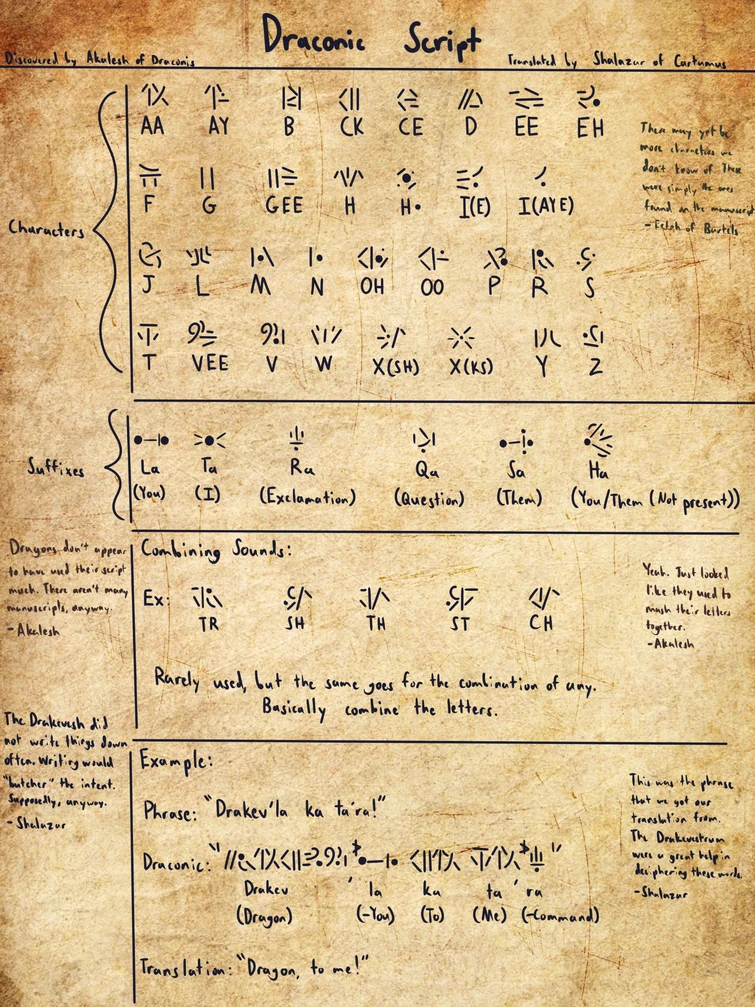 Draconic Script
Discovered by Akalesh of Draconis
Translated by Shalazar of Cartumus
Characters
AA AY B CK CE D EE EH
F G GEE H H• I(E) I(AYE)
J L M N OH OO P R S
T VEE V W X(SH) X(KS) Y Z
There may yet be
more characters we
don't know of. These
were simply the ones
found on the manuscript
- of
Suffixes
La Ta Ra Qa Sa Ha
(You) (I) (Exclamation) (Question) (Them) (You/Them (Not present))
Dragons don't appear
to have used their script
much. There aren't many
manuscripts, anyway.
- Akalesh
Combining Sounds:
Ex:
TR SH TH ST CH
Rarely used, but the same goes for the combination of any.
Basically combine the letters.
Yeah. Just looked
like they used to
mash their letters
together.
- Akalesh
The Drakevesh did
not write things down
often. Writing would
"butcher" the intent.
Supposedly, anyway.
- Shalazar
Example:
Phrase: "Drakev'la ka ta'ra!"
Draconic: " "
Drakev ' la ka ta ' ra
(Dragon) (-You) (To) (Me) (-Command)
Translation: "Dragon, to me!"
This was the phrase
that we got our
translation from.
The Drakevestrum
were a great help in
deciphering these words.
- Shalazar